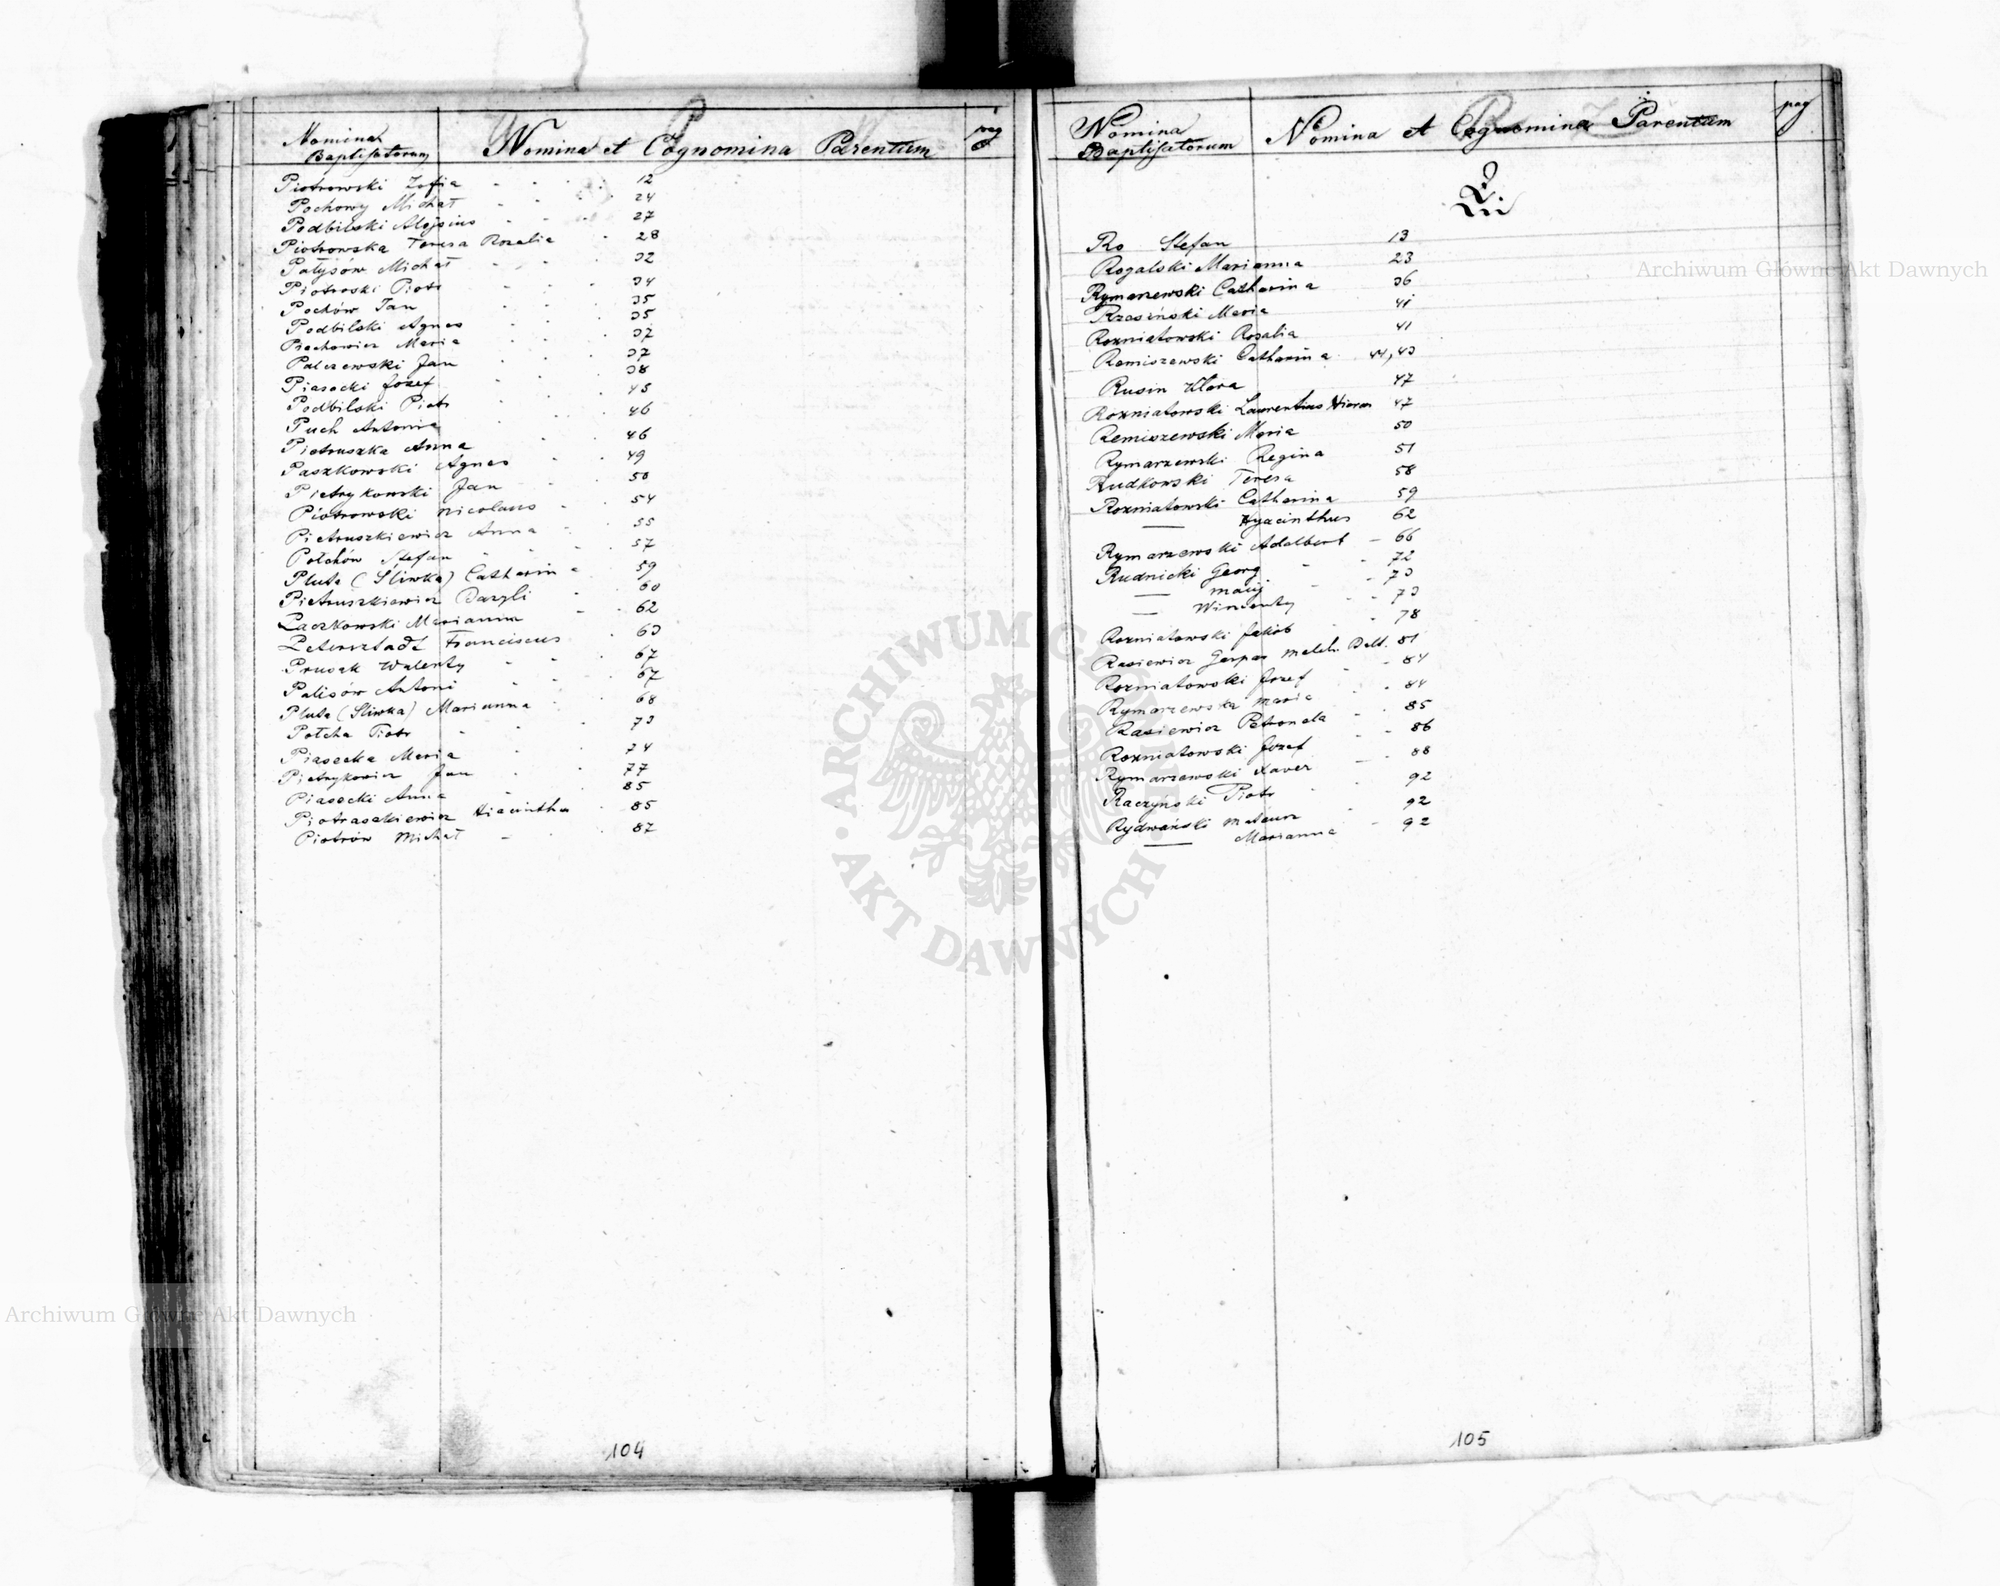 Nomina Baptisatorum
Nomina et Cognomina Parentum
pag
Piotrowski Zofia 12
Pochowy Michał 24
Podbilski Alojsius 27
Piotrowska Teresa Rozalia 28
Patysów Michał 32
Piotroski Piotr 34
Pochów Jan 35
Podbilski Agnes 35
Piechowicz Maria 37
Palczewski Jan 37
Piasecki Jozef 38
Podbilski Piotr 45
Puch Antonia 46
Pietruszka Anna 46
Paszkowski Agnes 49
Pietrykowski Jan 50
Piotrowski Nicolaus 54
Pietruszkiewicz Anna 55
Połchów Stefan 57
Pluta (Sliwka) Catharina 59
Pietruszkiewicz Bazyli 60
Paczkowski Marianna 62
Petersztadt Franciscus 63
Prusak Walenty 67
Palisów Antoni 67
Pluta (Sliwka) Marianna 68
Połcha Piotr 73
Piasecka Maria 74
Pietrykowicz Jan 77
Piasecki Anna 85
Piotraszkiewicz Hiacinthus 85
Piotrów Michał 87
104
Nomina Baptisatorum
Nomina et Cognomina Parentum
pag
R
Ro Stefan 13
Rogalski Marianna 23
Rymarzewski Catharina 36
Rzesiński Maria 41
Rozniatowski Rosalia 41
Remiszewski Catharina 44, 43
Rusin Klara 47
Rozniatowski Laurentius Hieron 47
Remiszewski Maria 50
Rymarzewski Regina 51
Rudkowski Teresa 58
Rozniatowski Catharina 59
— Hyacinthus 62
Rymarzewski Adalbert 66
Rudnicki Georg 72
— Maciij 73
— Wincenty 73
Rozniatowski Jakób 78
Rasiewicz Gaspar Melch. Balt. 81
Rozniatowski Jozef 84
Rymarzewska Maria 84
Rasiewicz Petronela 85
Rozniatowski Jozef 86
Rymarzewski Xaver 88
Raczyński Piotr 92
Rydwański Mateusz 92
— Marianna 92
105
Archiwum Główne Akt Dawnych
Archiwum Główne Akt Dawnych
ARCHIWUM GŁÓWNE AKT DAWNYCH